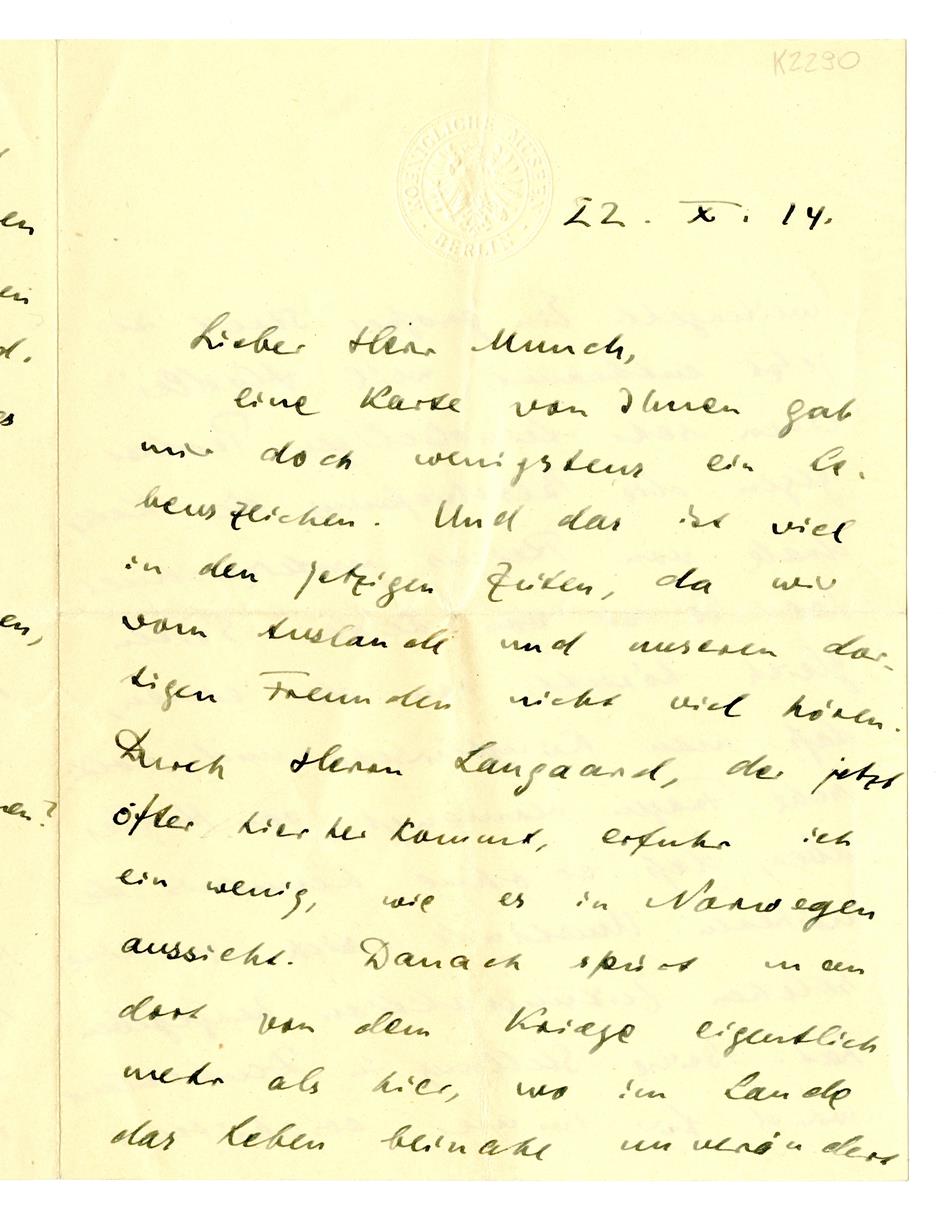 K2290
KOENIGLICHE MUSEEN
BERLIN
22. X. 14.
Lieber Herr Munch,
eine Karte von Ihnen gab
mir doch wenigstens ein Le-
benszeichen. Und das ist viel
in den jetzigen Zeiten, da wir
vom Auslande und unseren dor-
tigen Freunden nicht viel hören.
Durch Herrn Langaard, der jetzt
öfter hierher kommt, erfuhr ich
ein wenig, wie es in Norwegen
aussieht. Danach spürt man
dort von dem Kriege eigentlich
mehr als hier, wo im Lande
das Leben beinahe unverändert